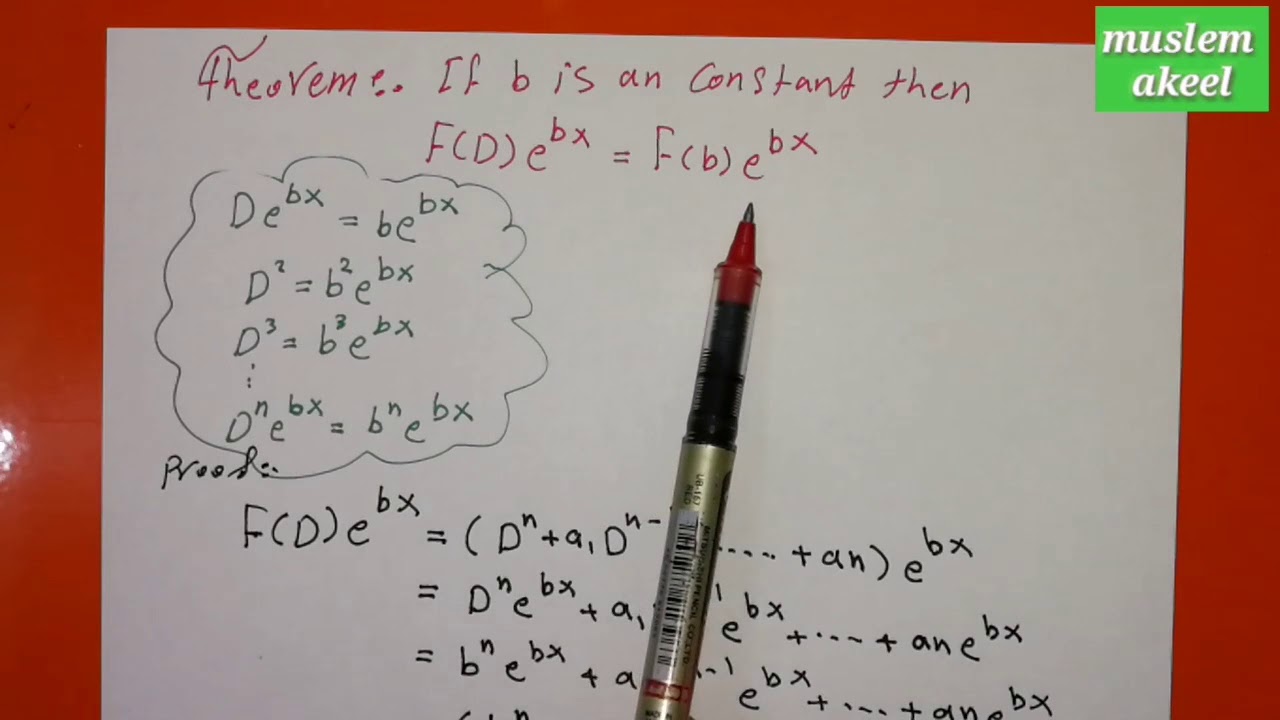 muslem
akeel
Theorem:. If b is an constant then
F(D)e^bx = F(b)e^bx
De^bx = be^bx
D² = b²e^bx
D³ = b³e^bx
⋮
Dⁿe^bx = bⁿe^bx
Proof:.
F(D)e^bx = (Dⁿ+a₁Dⁿ⁻ ....+an)e^bx
= Dⁿe^bx + a₁ ¹e^bx + ... + ane^bx
= bⁿe^bx + a -1 e^bx + ... + ane^bx